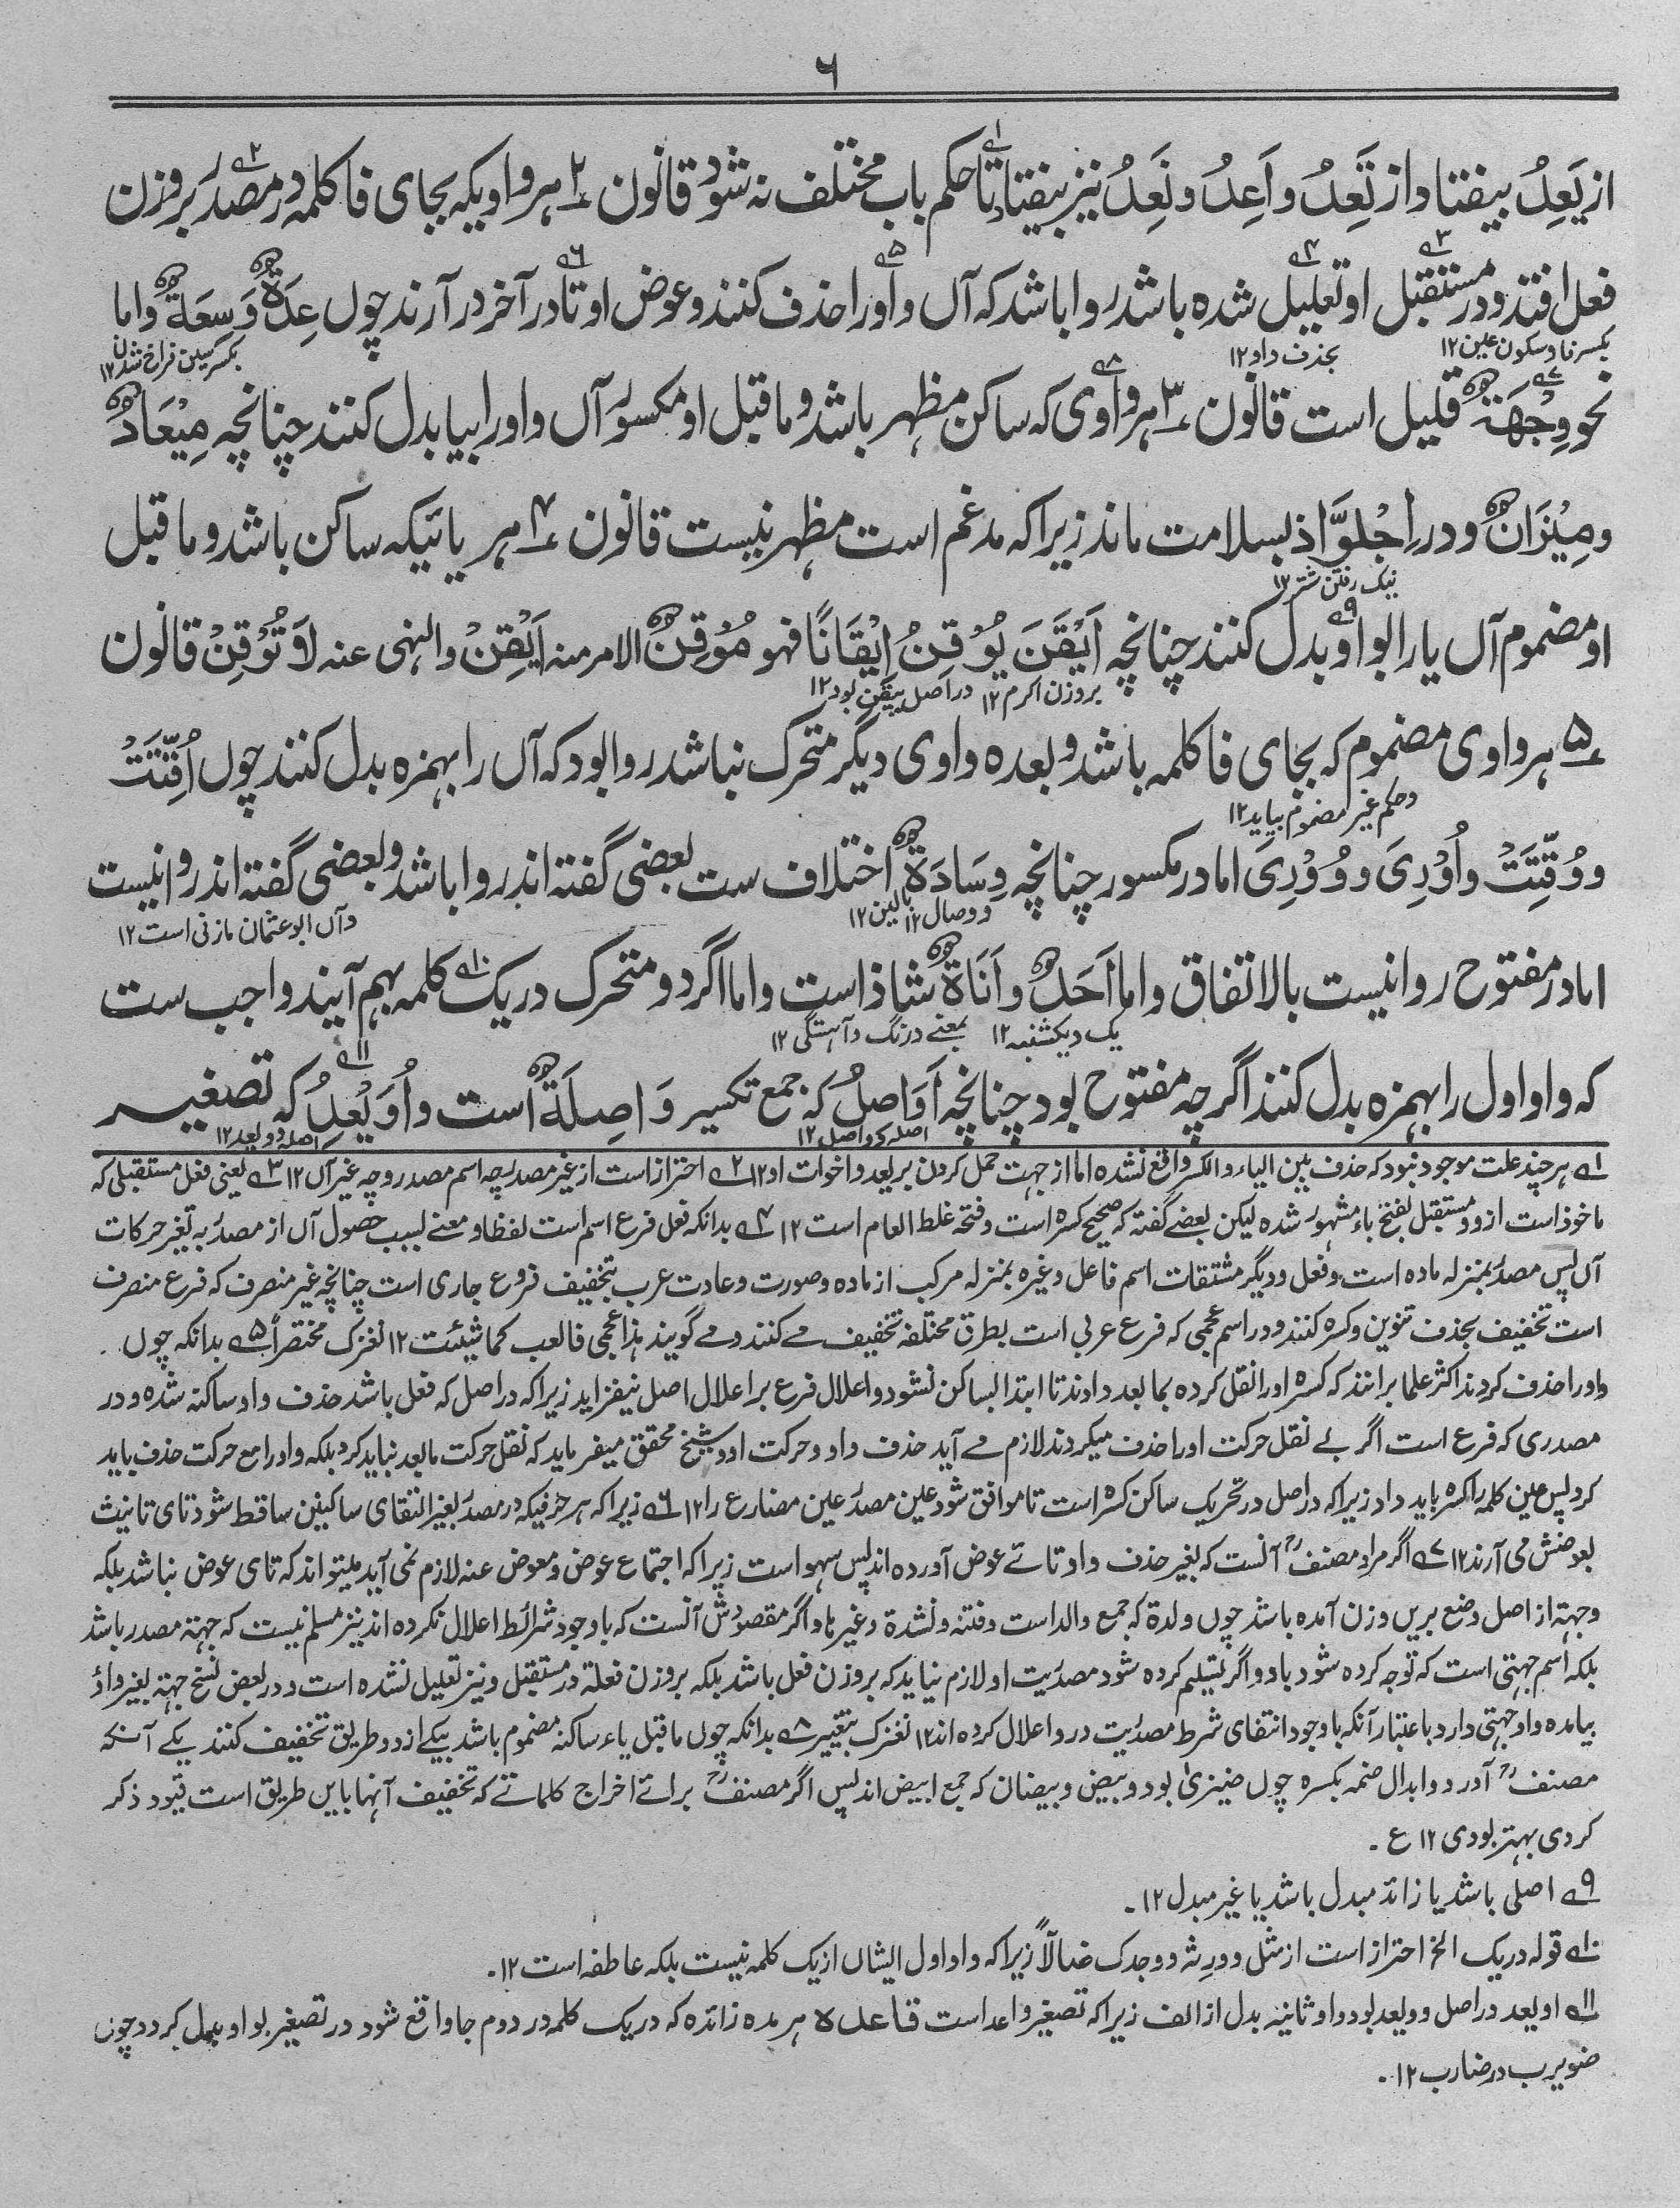 ۶
از یَعِدُ بیفتاد از تَعِدُ و اَعِدُ و نَعِدُ نیز بیفتاد تا حکم باب مختلف نہ شود قانون ۲ ہر واویکہ بجای فا کلمہ در مصدر بر وزن
فعل افتد و در مستقبل او تعلیل شدہ باشد روا باشد کہ آں واو را حذف کنند و عوض او تا در آخر در آرند چوں عِدَةٌ وَ سِعَةٌ و اما
بکسر فا و سکون عین ۱۲ بحذف واو ۱۲ بکسر سین فراخ شدن ۱۲
نحو وِجْهَةٌ قلیل است قانون ۳ ہر واوی کہ ساکن مظہر باشد و ماقبل او مکسور آں واو را بیا بدل کنند چنانچہ مِیْعَادٌ
و مِیْزَانٌ و در اِجْلِوَّاذ بسلامت ماند زیرا کہ مدغم است مظہر نیست قانون ۴ ہر یائیکہ ساکن باشد و ماقبل
نیک رفتن شتر ۱۲
او مضموم آں یا را بواو بدل کنند چنانچہ اَیْقَنَ یُوْقِنُ اِیْقَانًا فہو مُوْقِنٌ الامر منہ اَیْقِنْ والنہی عنہ لَا تُوْقِنْ قانون
بروزن اکرم ۱۲ در اصل ییقن بود ۱۲
۵ ہر واوی مضموم کہ بجای فا کلمہ باشد و بعدہ واوی دیگر متحرک نباشد روا بود کہ آں را بہمزہ بدل کنند چوں اُقِّتَتْ
و حکم غیر مضموم بیاید ۱۲
و وُقِّتَتْ و اُوْرِیَ و وُوْرِیَ اما در مکسور چنانچہ وِسَادَةٌ اختلاف ست بعضی گفتہ اند روا باشد و بعضی گفتہ اند روا نیست
و وصال ۱۲ بالین ۱۲ و آں ابو عثمان مازنی است ۱۲
اما در مفتوح روا نیست بالاتفاق و اما اَحَدٌ و اَنَاةٌ شاذ است و اما اگر دو متحرک در یک کلمہ بہم آیند واجب ست
یک و یکشنبہ ۱۲ بمعنے درنگ و آہستگی ۱۲
کہ واو اول را بہمزہ بدل کنند اگرچہ مفتوح بود چنانچہ اَوَاصِلُ کہ جمع تکسیر وَاصِلَةٌ است و اُوَیْعِدُ کہ تصغیر
اصلہ وواصل ۱۲ اصلہ وویعد ۱۲
۱ ہر چند علت موجود نبود کہ حذف بین الیاء والکسر واقع نشدہ اما از جہت حمل کردن بر یعد و اخوات او ۱۲ ۲ احتراز است از غیر مصدر چہ اسم مصدر و چہ غیر آں ۱۲ ۳ یعنی فعل مستقبلی کہ
ماخوذ است ازو و مستقبل بفتح باء مشہور شدہ لیکن بعضے گفتہ کہ صحیح کسرہ است و فتحہ غلط العام است ۱۲ ۴ بدانکہ فعل فرع اسم است لفظا و معنے لسبب حصول آں از مصدر بہ تغیر حرکات
آں پس مصدر بمنزلہ مادہ است و فعل و دیگر مشتقات اسم فاعل و غیرہ بمنزلہ مرکب از مادہ و صورت و عادت عرب بتخفیف فروع جاری است چنانچہ غیر منصرف کہ فرع منصرف
است تخفیف بحذف تنوین و کسرہ کنند و در اسم عجمی کہ فرع عربی است بطرق مختلفہ تخفیف مے کنند و مے گویند ہذا عجمی فالعب کما شئت ۱۲ نغزک مختصراً ۵ بدانکہ چوں
واو را حذف کردند اکثر علما برانند کہ کسرہ او را نقل کردہ بما بعد دادند تا ابتدا بساکن نشود و اعلال فرع بر اعلال اصل نیفزاید زیرا کہ در اصل کہ فعل باشد حذف واو ساکنہ شدہ و در
مصدری کہ فرع است اگر بے نقل حرکت او را حذف میکردند لازم مے آید حذف واو و حرکت او و شیخ محقق میفرماید کہ نقل حرکت مابعد نباید کرد بلکہ واو را مع حرکت حذف باید
کرد پس عین کلمہ را کسرہ باید داد زیرا کہ در اصل در تحریک ساکن کسرہ است تا موافق شود عین مصدر عین مضارع را ۱۲ ۶ زیرا کہ ہر حرفیکہ در مصدر بغیر التقای ساکنین ساقط شود تای تانیث
بعوضش می آرند ۱۲ ۷ اگر مراد مصنف آنست کہ بغیر حذف واو تائے عوض آوردہ اند پس سہو است زیرا کہ اجتماع عوض و معوض عنہ لازم نمی آید میتواند کہ تای عوض نباشد بلکہ
وجہتہ از اصل وضع بریں وزن آمدہ باشد چوں ولدة کہ جمع والد است و فتنہ و نشدة و غیرہا و اگر مقصودش آنست کہ باوجود شرائط اعلال نکردہ اند نیز مسلم نیست کہ جہتہ مصدر باشد
بلکہ اسم جہتی است کہ توجہ کردہ شود باو و اگر تسلیم کردہ شود مصدریت او لازم نیاید کہ بروزن فعل باشد بلکہ بروزن فعلة و در مستقبل و نیز تعلیل نشدہ است و در بعض نسخ جہة بغیر واو
بیامدہ و او جہتی دارد باعتبار آنکہ باوجود انتفای شرط مصدریت در و اعلال کردہ اند ۱۲ نغزک بتغییر ۸ بدانکہ چوں ماقبل یاء ساکنہ مضموم باشد بیکے از دو طریق تخفیف کنند یکے آنکہ
مصنف آورد و ابدال ضمہ بکسرہ چوں ضیزیٰ بود و بیض و بیضان کہ جمع ابیض اند پس اگر مصنف برائے اخراج کلماتے کہ تخفیف آنہا باین طریق است قیود ذکر
کردی بہتر بودی ۱۲ ع۔
۹ اصلی باشد یا زائد مبدل باشد یا غیر مبدل ۱۲۔
۱۰ قولہ در یک الخ احتراز است از مثل وورثہ ووجدک ضالاً زیرا کہ واو اول ایشاں از یک کلمہ نیست بلکہ عاطفہ است ۱۲۔
۱۱ اویعد در اصل وویعد بود واو ثانیہ بدل از الف زیرا کہ تصغیر واعد است قاعدہ ہر مدہ زائدہ کہ در یک کلمہ در دوم جا واقع شود در تصغیر بواو بدل گردد چوں
ضویرب در ضارب ۱۲۔